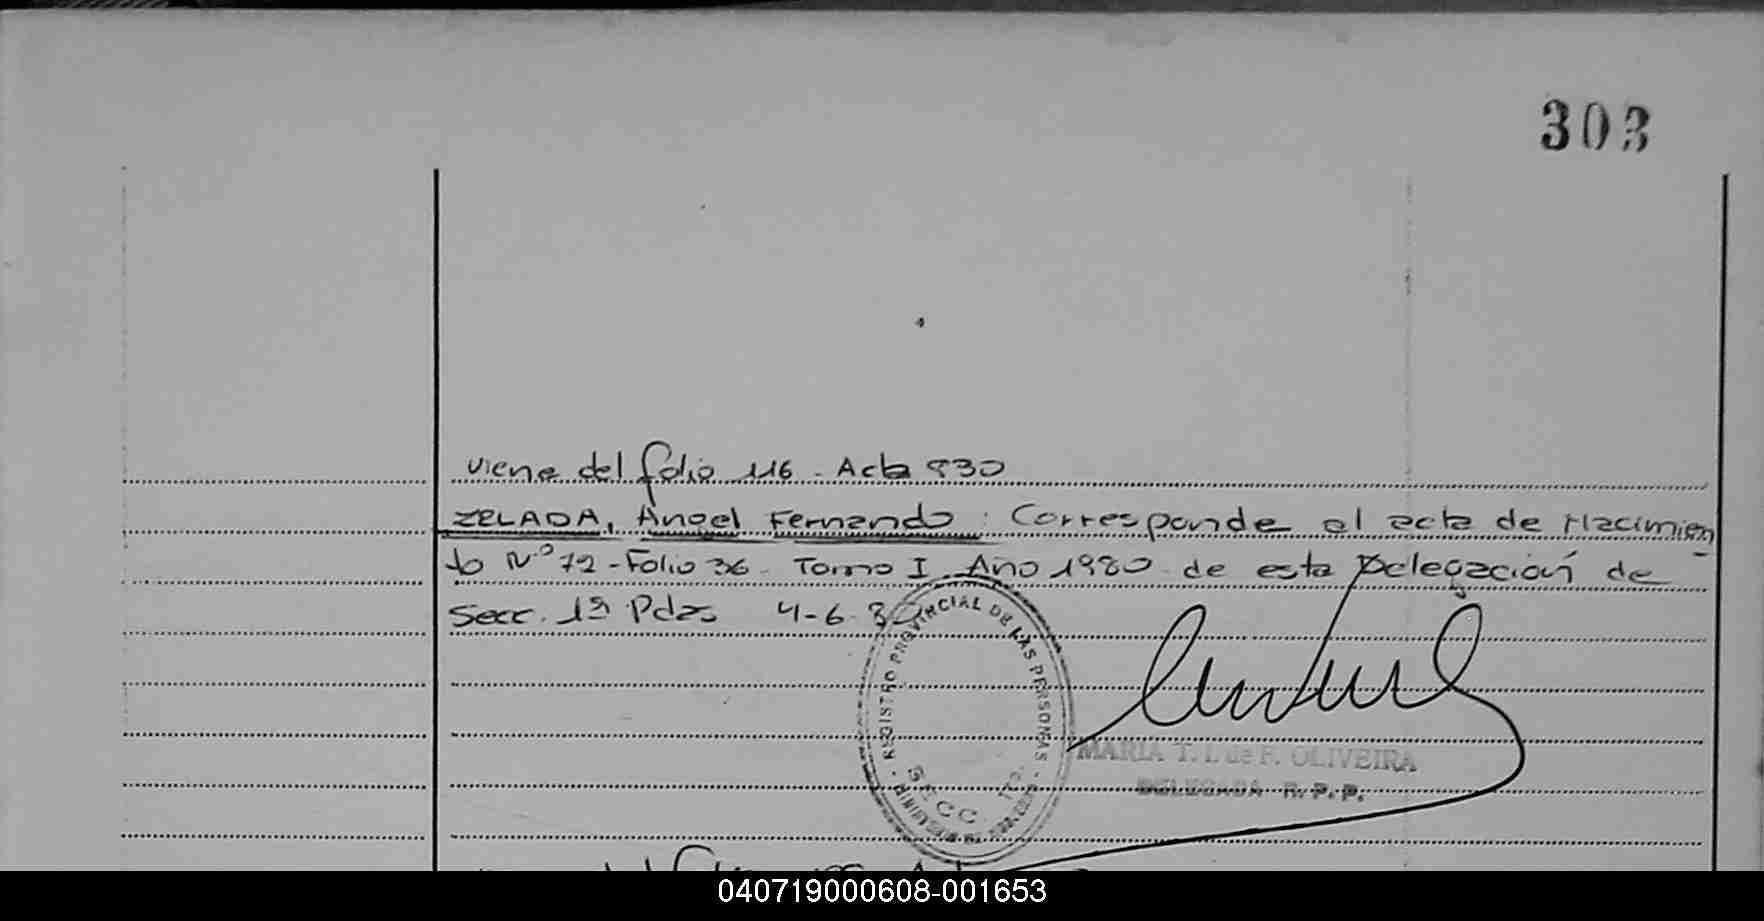 303
viene del folio 116 - Acta 830
ZELADA, Angel Fernando : Corresponde al acta de Nacimien
to Nº 72 - Folio 36 - Tomo I - Año 1980 de esta Delegación de
Secc. 1ª Pdas 4-6-80
REGISTRO PROVINCIAL DE LAS PERSONAS
SECC. 1ra.
MARIA T. I. de F. OLIVEIRA
DELEGADA R. P. P.
040719000608-001653